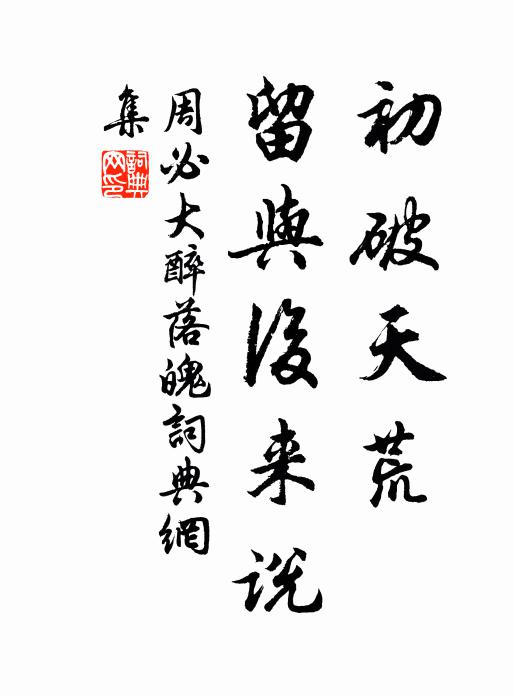 初破天荒
留與後来說
周必大醉落魄詞典網
集
詞典網印